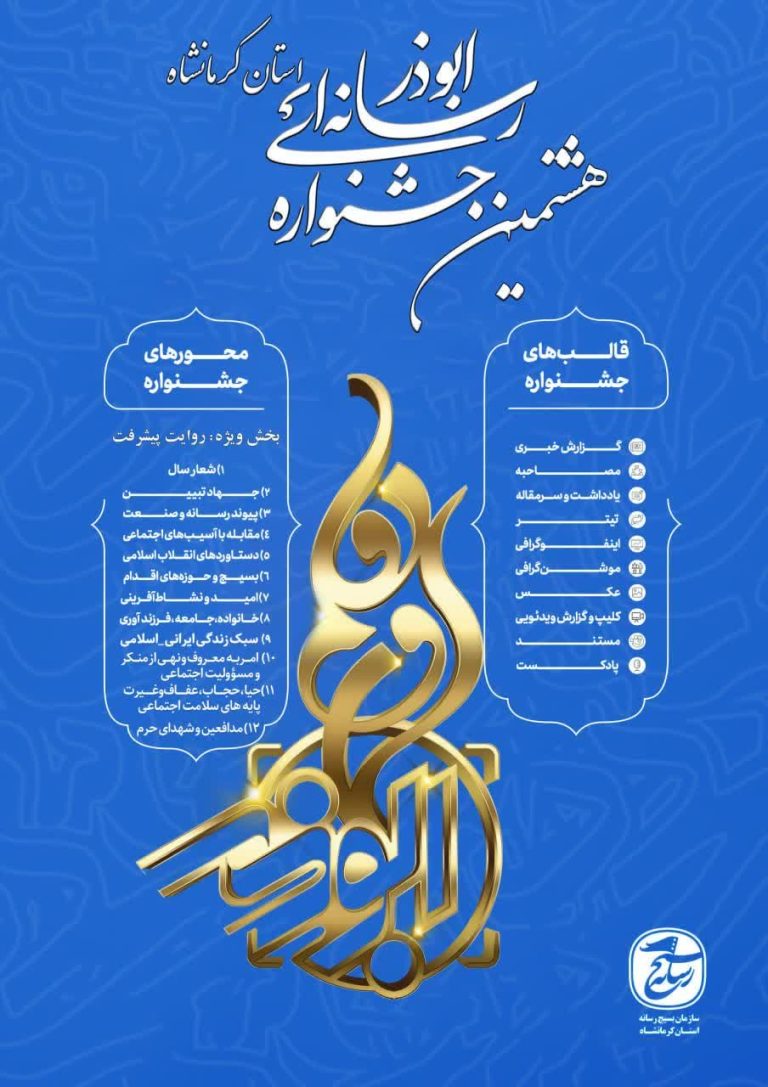 هشتمین
جشنواره
رسانه‌ای
ابوذر
استان کرمانشاه
قالب‌های
جشنواره
گزارش خبری
مصاحبه
یادداشت و سرمقاله
تیتر
اینفوگرافی
موشن‌گرافی
عکس
کلیپ و گزارش ویدئویی
مستند
پادکست
محورهای
جشنواره
بخش ویژه: روایت پیشرفت
۱) شعار سال
۲) جهاد تبیین
۳) پیوند رسانه و صنعت
۴) مقابله با آسیب‌های اجتماعی
۵) دستاوردهای انقلاب اسلامی
۶) بسیج و حوزه‌های اقدام
۷) امید و نشاط‌آفرینی
۸) خانواده، جامعه، فرزندآوری
۹) سبک زندگی ایرانی_اسلامی
۱۰) امر به معروف و نهی از منکر
و مسؤولیت اجتماعی
۱۱) حیا، حجاب، عفاف و غیرت
پایه های سلامت اجتماعی
۱۲) مدافعین و شهدای حرم
ابوذر
بسیج
رسانه
سازمان بسیج رسانه
استان کرمانشاه